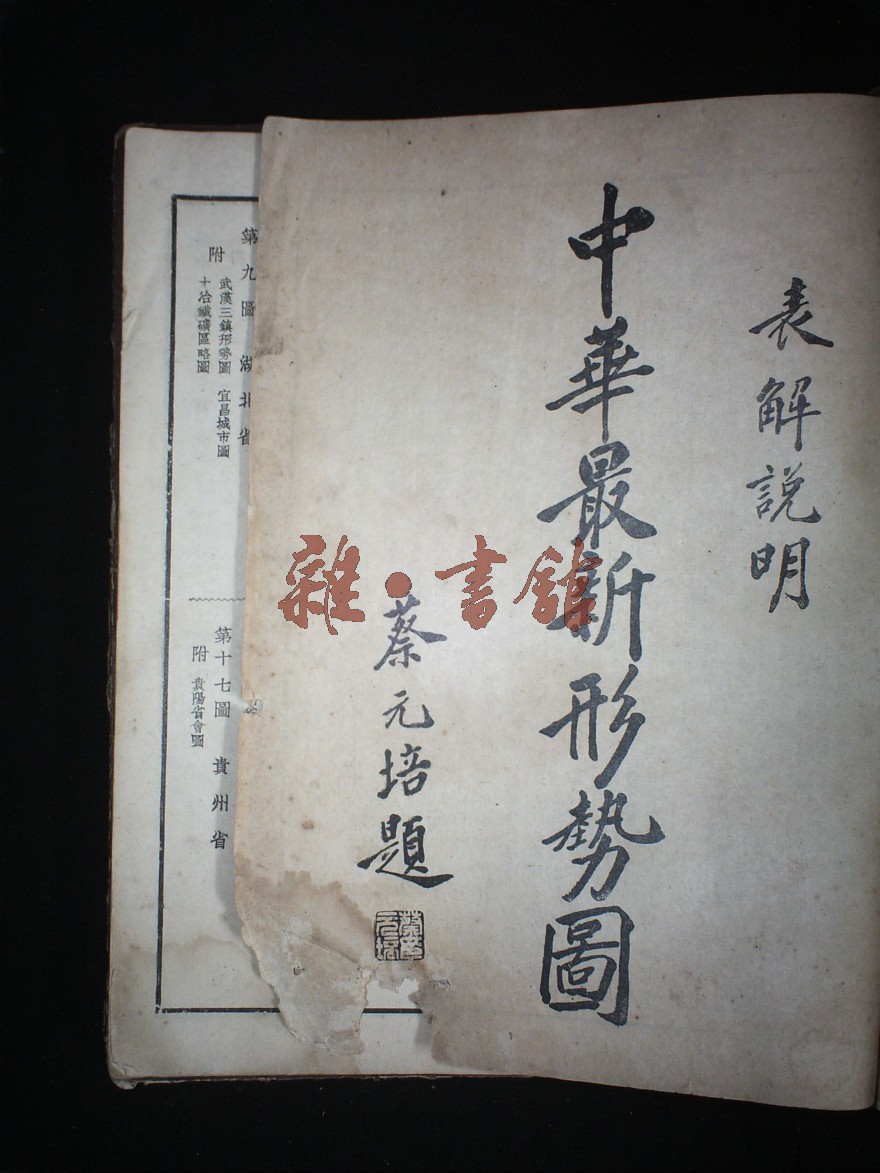 表解說明
中華最新形勢圖
蔡元培題
蔡元培
雜·書館
第九圖 湖北省
附 武漢三鎮形勢圖 宜昌城市圖
冶鐵礦區略圖
第十七圖 貴州省
附 貴陽省會圖